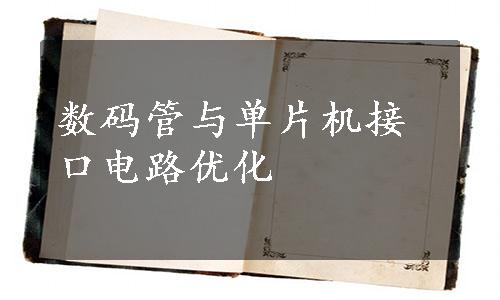 数码管与单片机接
口电路优化